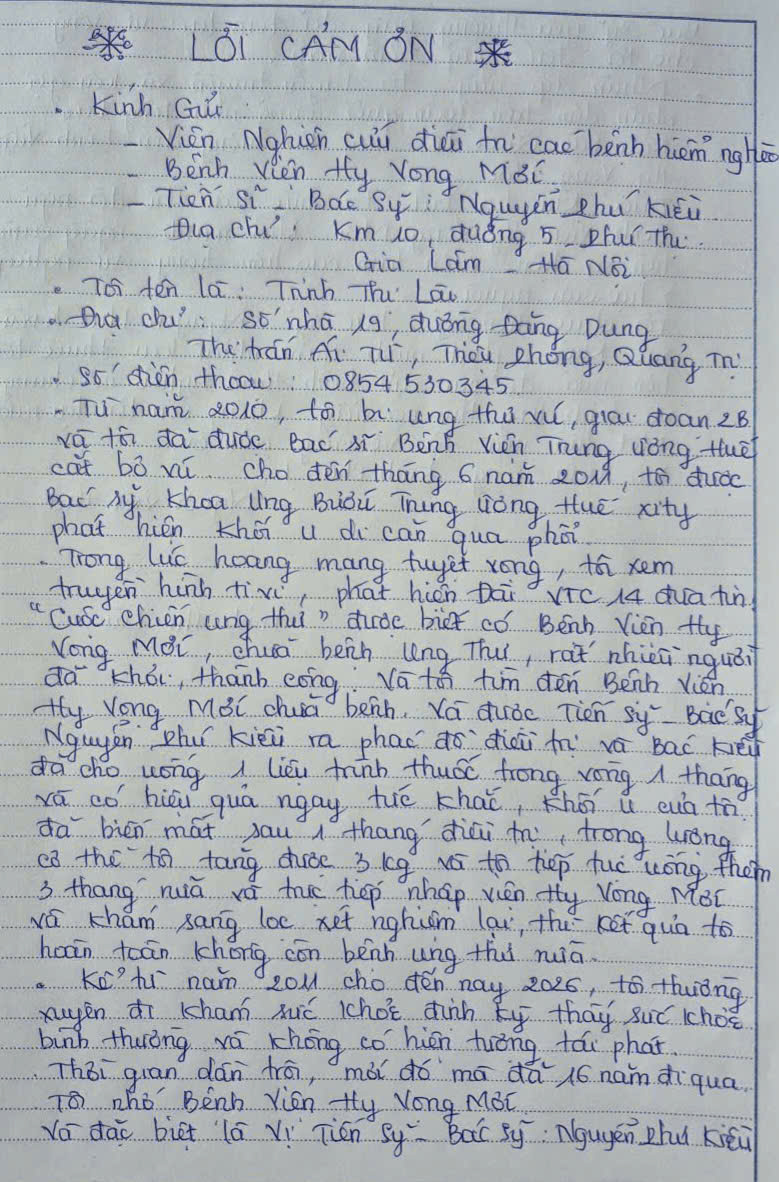 LỜI CẢM ƠN
• Kính Gửi:
- Viện Nghiên cứu điều trị các bệnh hiểm nghèo
- Bệnh viện Hy Vọng Mới
- Tiến sĩ - Bác sỹ: Nguyễn Phú Kiều
Địa chỉ: Km 10, đường 5 - Phú Thị.
Gia Lâm - Hà Nội
• Tôi tên là: Trịnh Thị Lâu
• Địa chỉ: Số nhà 19, đường Đặng Dung
Thị trấn Ái Tử, Triệu Phong, Quảng Trị
• Số điện thoại: 0854 530345
- Từ năm 2010, tôi bị ung thư vú, giai đoạn 2B
và tôi đã được Bác sĩ Bệnh viện Trung ương Huế
cắt bỏ vú. Cho đến tháng 6 năm 2011, tôi được
Bác sỹ khoa Ung Bướu Trung ương Huế xity
phát hiện khối u di căn qua phổi.
• Trong lúc hoang mang tuyệt vọng, tôi xem
truyền hình ti vi, phát hiện Đài VTC 14 đưa tin
"Cuộc chiến ung thư" được biết có Bệnh Viện Hy
Vọng Mới, chữa bệnh Ung Thư, rất nhiều người
đã khỏi, thành công. Và tôi tìm đến Bệnh Viện
Hy Vọng Mới chữa bệnh. Và được Tiến sỹ - Bác sỹ
Nguyễn Phú Kiều ra phác đồ điều trị và Bác Kiều
đã cho uống 1 liệu trình thuốc trong vòng 1 tháng
và có hiệu quả ngay tức khắc, khối u của tôi
đã biến mất sau 1 tháng điều trị, trọng lượng
cơ thể tôi tăng được 3 kg và tôi tiếp tục uống thêm
3 tháng nữa và trực tiếp nhập viện Hy Vọng Mới
và khám sàng lọc xét nghiệm lại, thì kết quả tô
hoàn toàn không còn bệnh ung thư nữa.
• Kể từ năm 2011 cho đến nay 2026, tô thường
xuyên đi khám sức khỏe định kỳ thấy sức khỏe
bình thường và không có hiện tượng tái phát.
• Thời gian dần trôi, mới đó mà đã 16 năm đi qua.
Tôi nhớ Bệnh Viện Hy Vọng Mới
Và đặc biệt là Vị Tiến sỹ - Bác sỹ: Nguyễn Phú Kiều